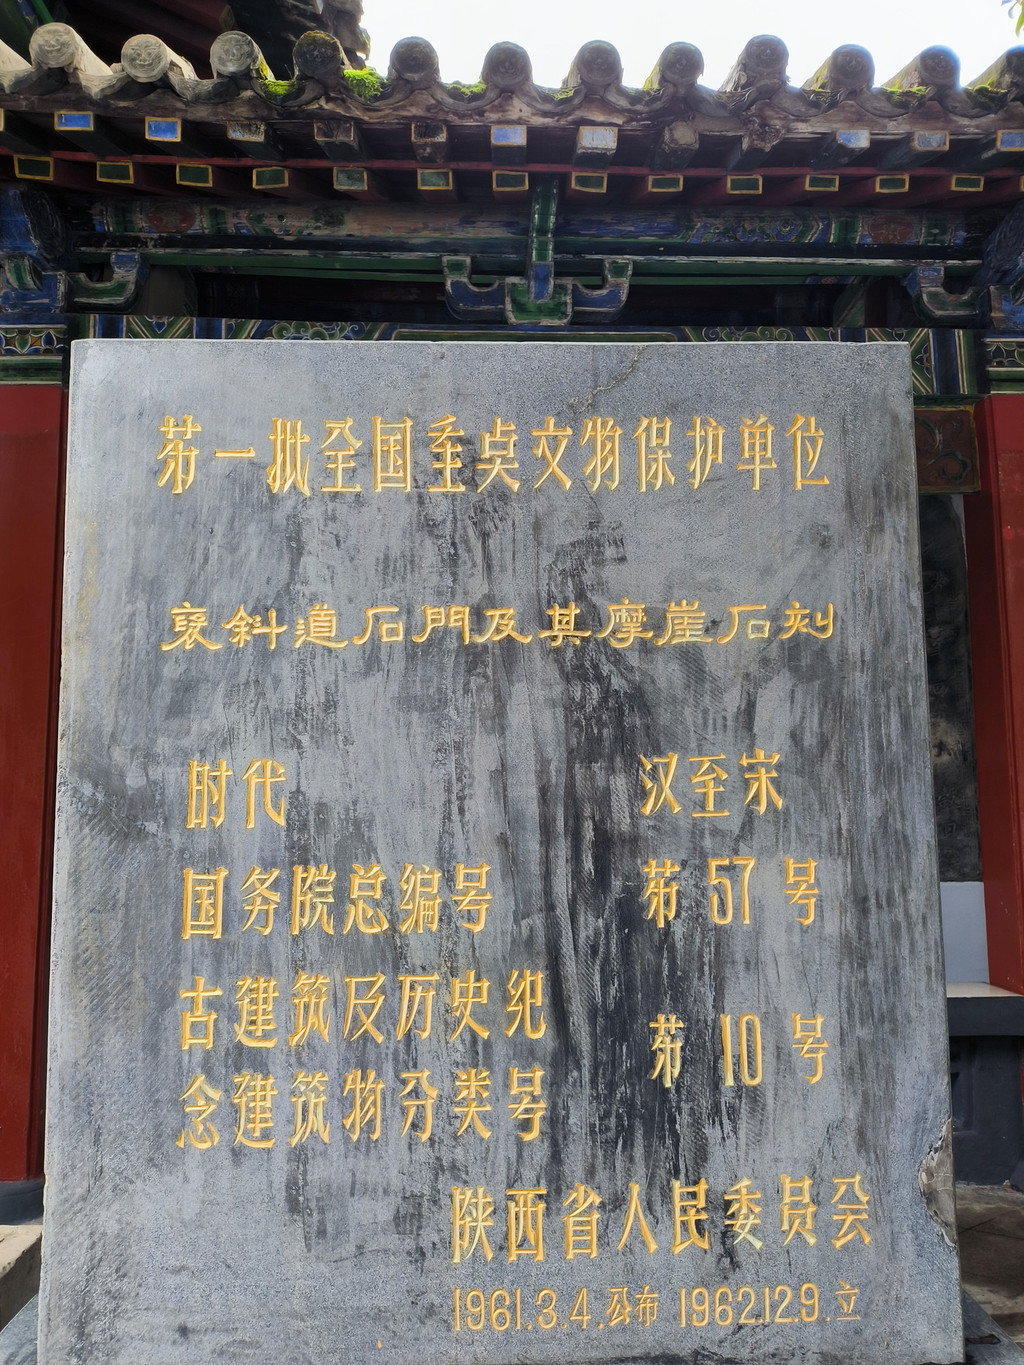 第一批全国重点文物保护单位
褒斜道石門及其摩崖石刻
时代 汉至宋
国务院总编号 第57号
古建筑及历史纪
念建筑物分类号 第10号
陕西省人民委员会
1961.3.4.公布 1962.12.9.立